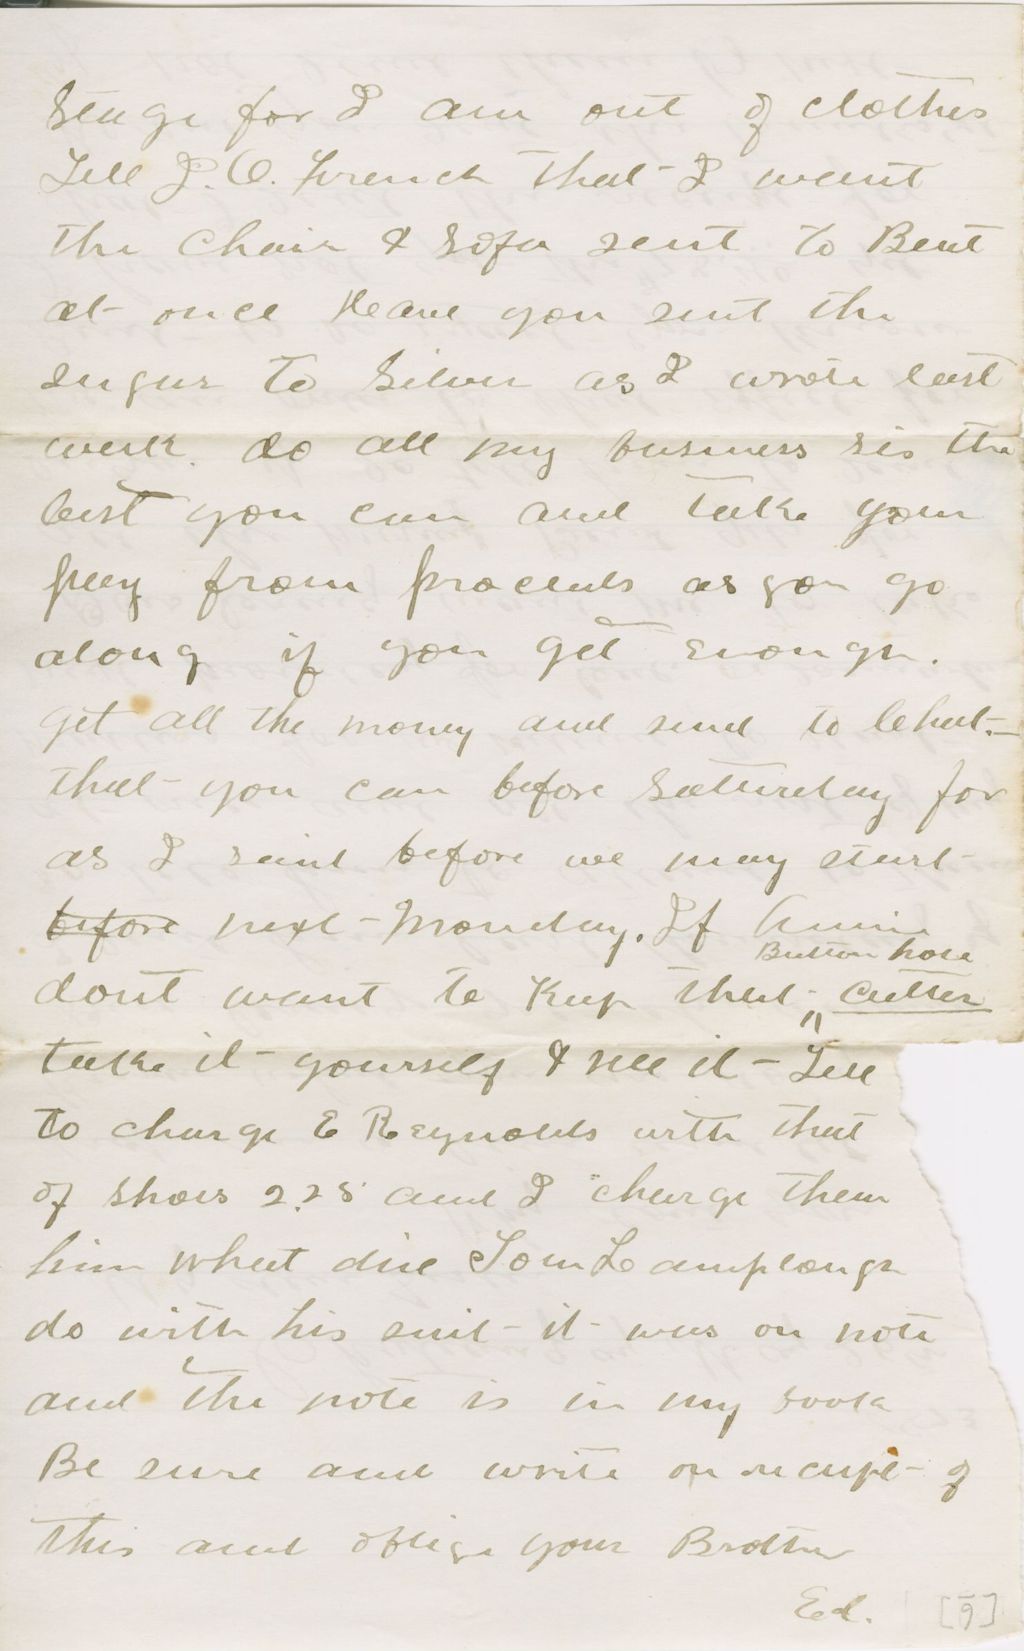 Stage for I am out of clothes
Tell J. O. French that I want
the Chair & Sofa sent to Bent
at once Have you sent the
sugar to Silver as I wrote last
week. do all my business sis the
best you can and take your
pay from proceeds as you go
along if you get enough.
get all the money and send to
that you can before Saturday for
as I said before we may start
before next Monday. If Annie
Button hole
dont want to Keep that cutter
take it yourself & sell it - Tell
to charge E Reynolds with that
of shoes 2.25 and I charge them
him What did Tom Lamplough
do with his suit it was on note
and the note is in my book
Be sure and write on receipt of
this and oblige your Brother
Ed. [9]